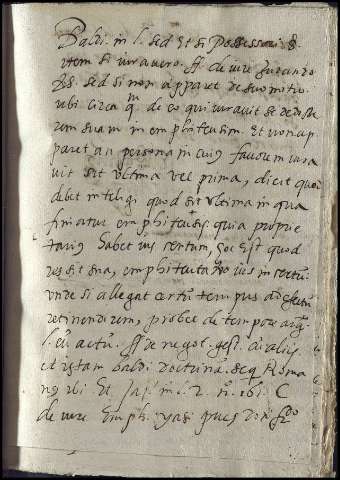 Baldi. in l. sed et si possessori §.
item si iuravero. ff. de iure iurando
sed si non apparet de suo initio
ubi circa q. de eo qui iuravit se dedisse
rem suam in emphiteusim. Et non ap
paret an persona in cuius favorem iura
vit sit ultima vel prima, dicit quod
debet intelligi quod sit ultima in qua
finiatur emphiteusis: quia proprie
tarius habet ius certum, hoc est quod
res sit sua, emphiteuta ius incertu.
unde si allegat certum tempus ad
retinendum, probet de tempore
l. actu. ff. de negot. gest. alias
et istam Baldi doctrina. seq Roma
ibi Et Jas. in l. 2. n. 161. C
de iure Emph.